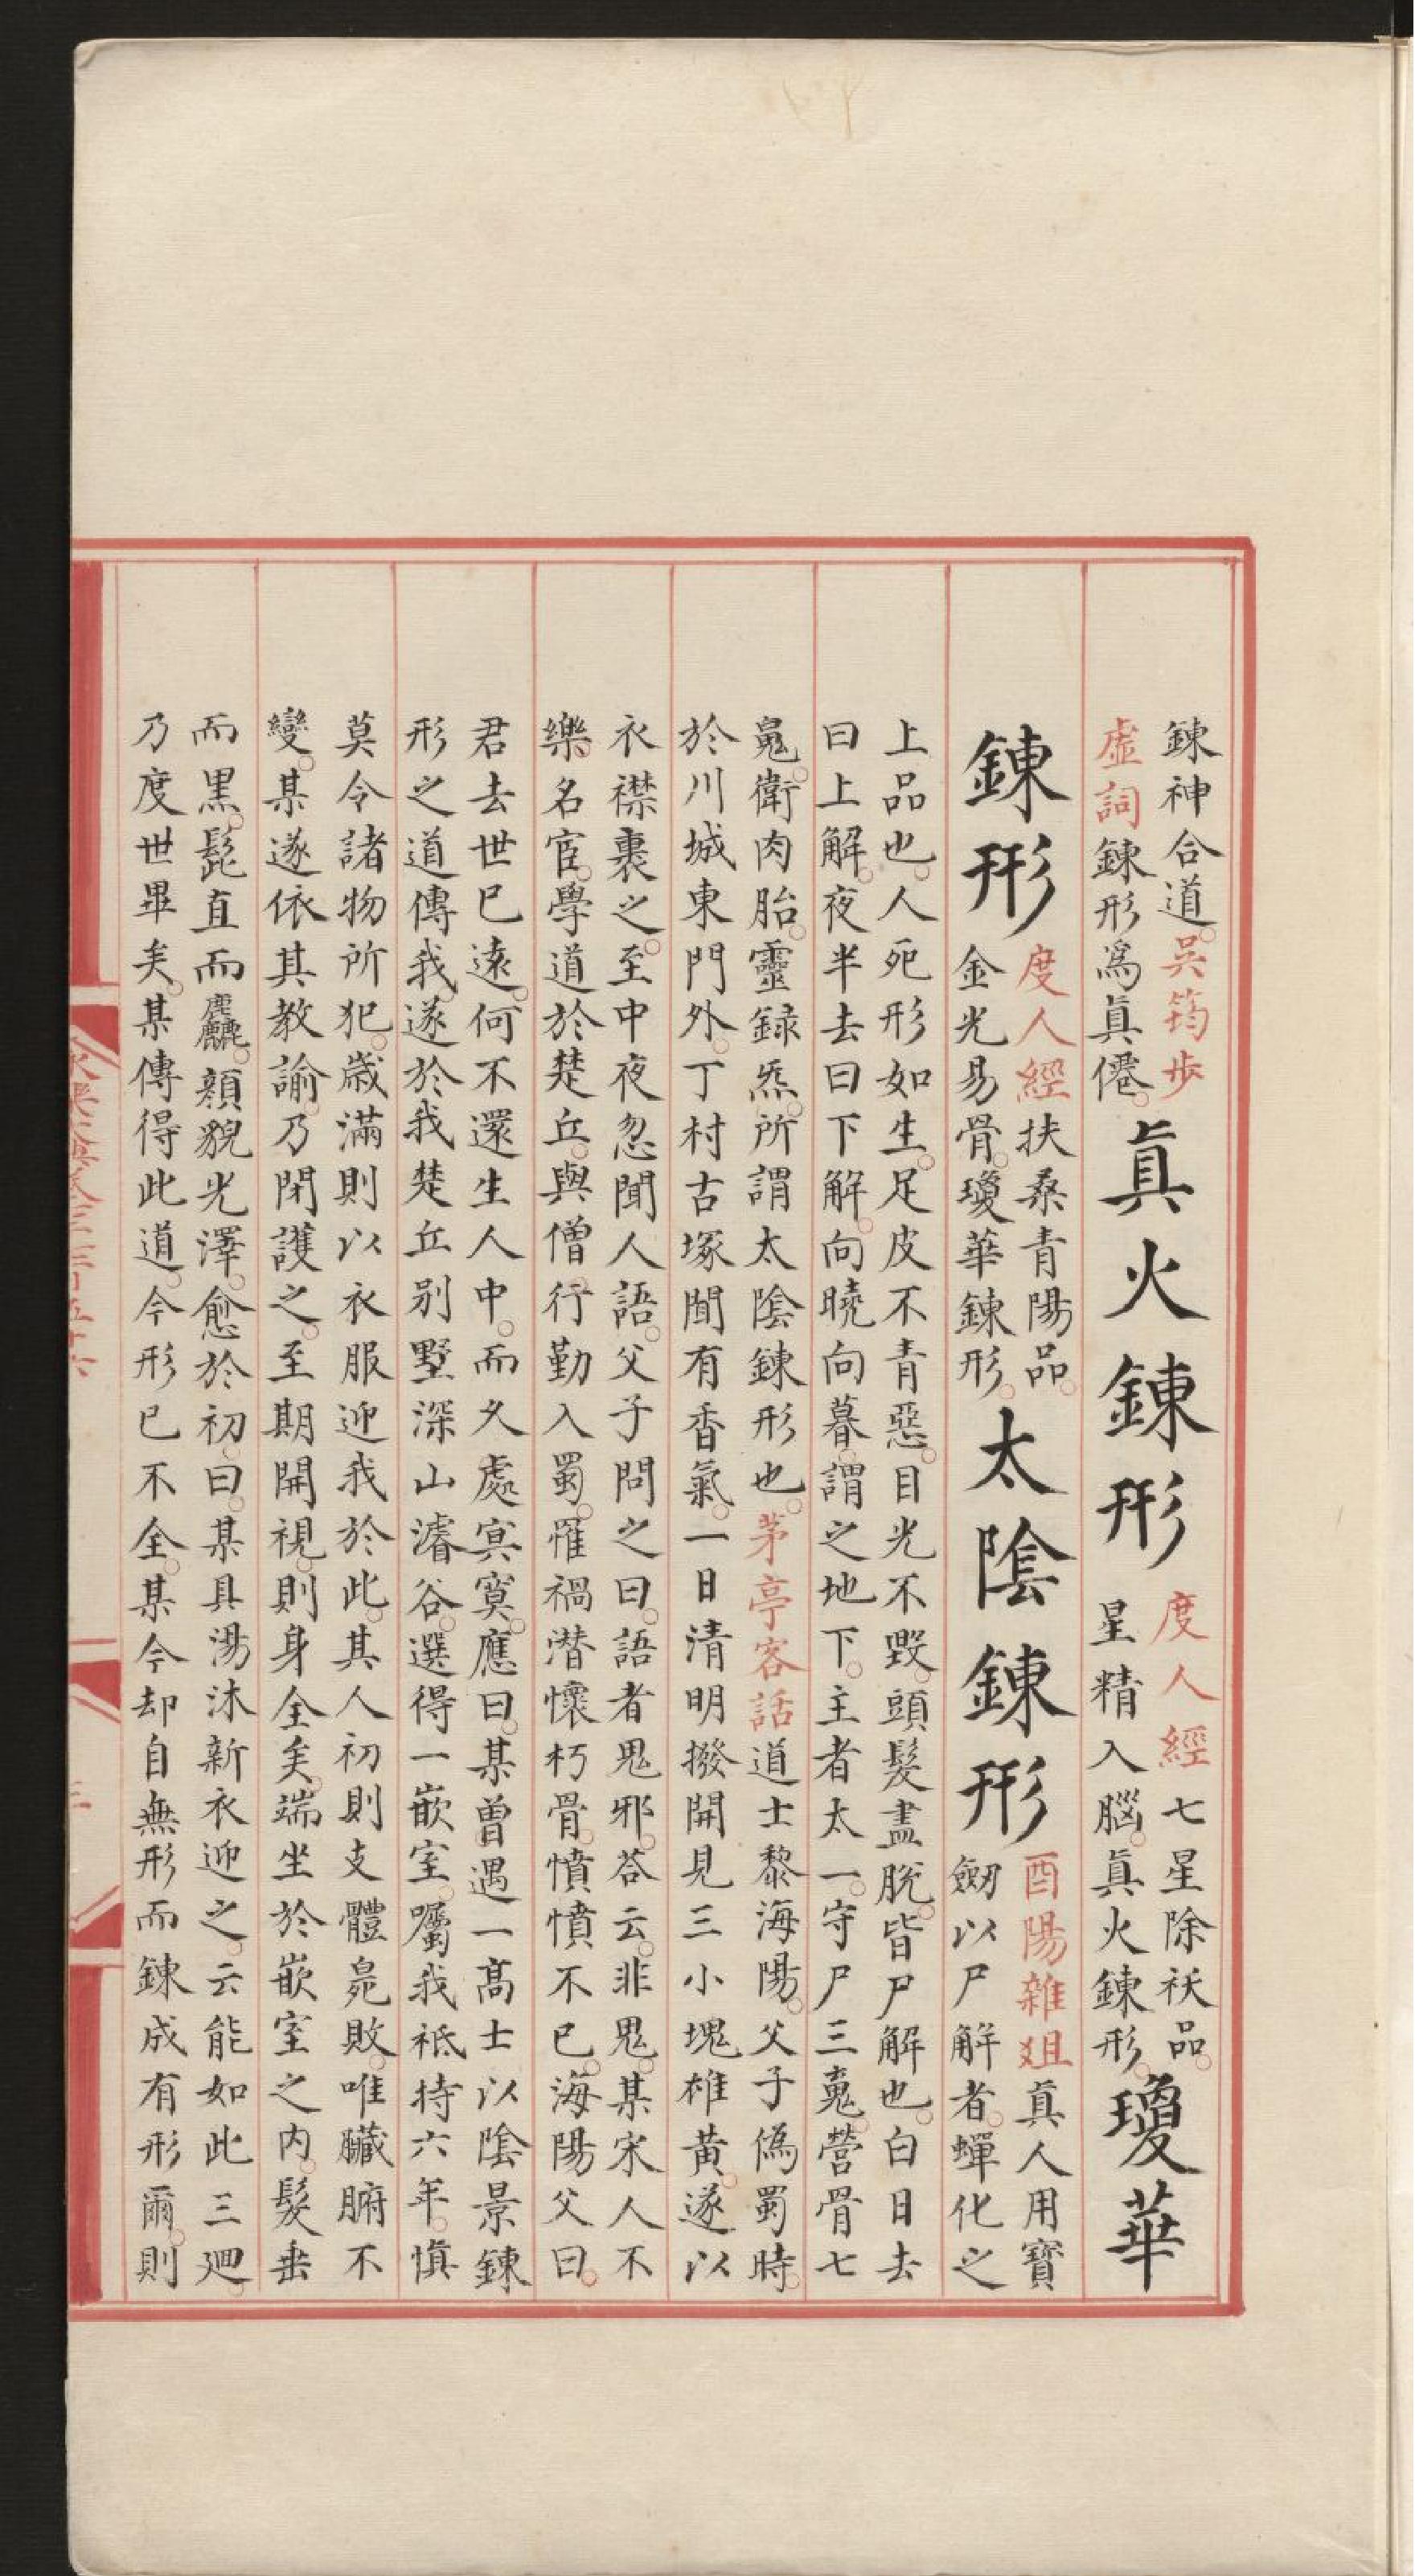 鍊神合道。吳筠步
虛詞鍊形爲眞僊。
眞火鍊形
度人經七星除祅品。
星精入腦。眞火鍊形。
瓊華
鍊形
度人經扶桑青陽品。
金光易骨。瓊華鍊形。
太陰鍊形
酉陽雜俎眞人用寶
劒以尸解者。蟬化之
上品也。人死形如生。足皮不青惡。目光不毀。頭髮盡脫。皆尸解也。白日去
曰上解。夜半去曰下解。向曉向暮。謂之地下。主者太一。守尸三䰟。營骨七
䰟。衛肉胎。靈録炁。所謂太陰鍊形也。茅亭客話道士黎海陽。父子僞蜀時。
於川城東門外。丁村古塚間有香氣。一日清明撥開見三小塊雄黃。遂以
衣襟裹之。至中夜忽聞人語。父子問之曰。語者鬼邪。荅云。非鬼。某宋人不
樂。名宦。學道於楚丘。與僧行勤入蜀。罹禍潛懷朽骨。憤憤不已。海陽父曰。
君去世已遠。何不還生人中。而久處冥寞。應曰。某曾遇一高士以陰景鍊
形之道傳我。遂於我楚丘别墅深山濬谷。選得一嵌室。囑我祗持六年。慎
莫令諸物所犯。歲滿則以衣服迎我於此。其人初則支體臰敗。唯臟腑不
變。某遂依其教諭。乃閉護之。至期開視。則身全矣。端坐於嵌室之内。髮垂
而黑。髭直而麤。顏貌光澤。愈於初。曰。某具湯沐新衣迎之。云能如此三廻。
乃度世畢矣。某傳得此道。今形已不全。某今却自無形而鍊成有形爾。則